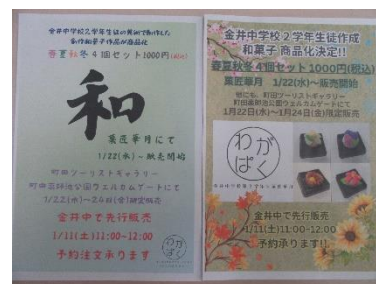 金井中学校2学年生徒の美術で制作した
創作和菓子作品が商品化
春夏秋冬 4個セット1000円(税込)
和
菓匠華月にて
1/22(水)～販売開始
町田ツーリストギャラリー
町田薬師池公園ウェルカムゲートにて
1/22(水)～24日(金)限定販売
金井中で先行販売
1/11(土)11:00-12:00
予約注文承ります
金井中学校2学年生徒作成
和菓子 商品化決定!!
春夏秋冬4個セット1000円(税込)
菓匠華月 1/22(水)～販売開始
他にも、町田ツーリストギャラリー
町田薬師池公園ウェルカムゲートにて
1月22日(水)～1月24日(金)限定販売
わ が
ば く
金井中で先行販売
1/11(土)11:00-12:00
予約承ります!!